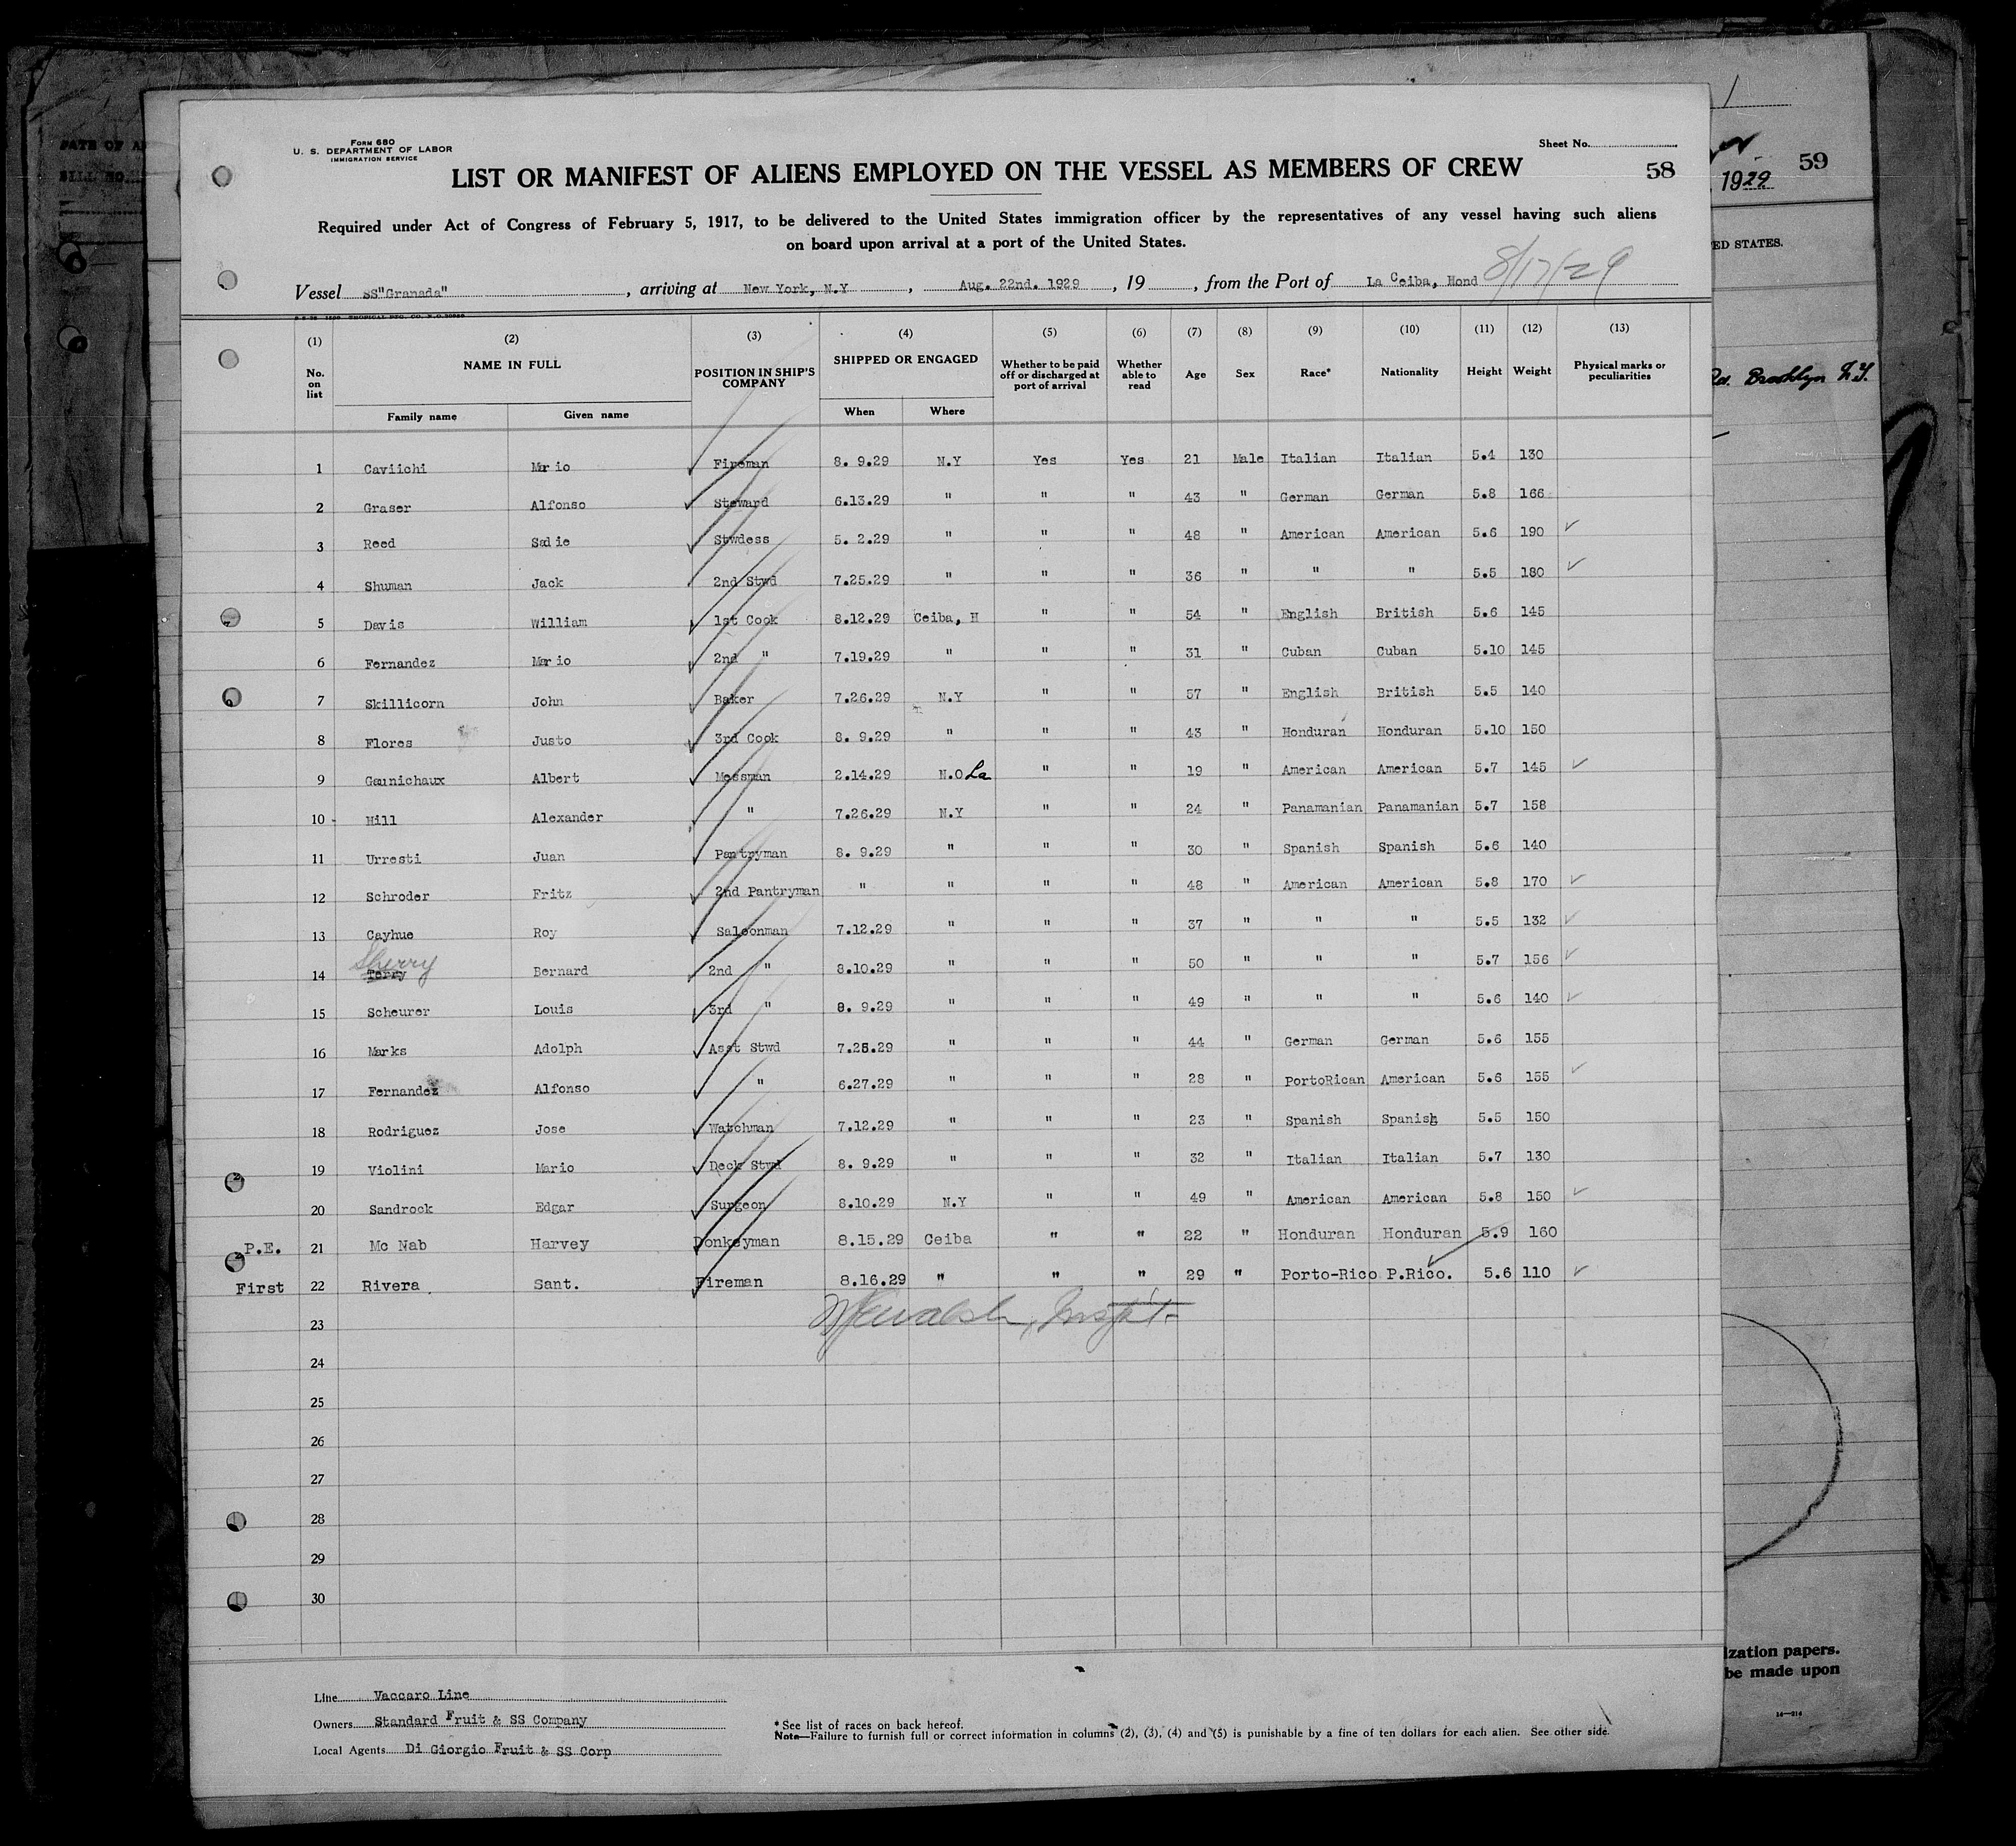 Form 680
U. S. DEPARTMENT OF LABOR
IMMIGRATION SERVICE
Sheet No.
LIST OR MANIFEST OF ALIENS EMPLOYED ON THE VESSEL AS MEMBERS OF CREW
58
Required under Act of Congress of February 5, 1917, to be delivered to the United States immigration officer by the representatives of any vessel having such aliens
on board upon arrival at a port of the United States.
Vessel SS"Granada", arriving at New York, N.Y, Aug. 22nd. 1929, 19, from the Port of La Ceiba, Hond 8/17/29
(1) (2) (3) (4) (5) (6) (7) (8) (9) (10) (11) (12) (13)
No. on list NAME IN FULL POSITION IN SHIP'S COMPANY SHIPPED OR ENGAGED Whether to be paid off or discharged at port of arrival Whether able to read Age Sex Race* Nationality Height Weight Physical marks or peculiarities
Family name Given name When Where
1 Caviichi Mario Fireman 8. 9.29 N.Y Yes Yes 21 Male Italian Italian 5.4 130
2 Graser Alfonso Steward 6.13.29 " " " 43 " German German 5.8 166
3 Reed Sadie Stwdess 5. 2.29 " " " 48 " American American 5.6 190 ✓
4 Shuman Jack 2nd Stwd 7.25.29 " " " 36 " " " 5.5 180 ✓
5 Davis William 1st Cook 8.12.29 Ceiba, H " " 54 " English British 5.6 145
6 Fernandez Mario 2nd " 7.19.29 " " " 31 " Cuban Cuban 5.10 145
7 Skillicorn John Baker 7.26.29 N.Y " " 57 " English British 5.5 140
8 Flores Justo 3rd Cook 8. 9.29 " " " 43 " Honduran Honduran 5.10 150
9 Gaunichaux Albert Messman 2.14.29 N.O La " " 19 " American American 5.7 145 ✓
10 Hill Alexander " 7.26.29 N.Y " " 24 " Panamanian Panamanian 5.7 158
11 Urresti Juan Pantryman 8. 9.29 " " " 30 " Spanish Spanish 5.6 140
12 Schroder Fritz 2nd Pantryman " " " " 48 " American American 5.8 170 ✓
13 Cayhue Roy Saloonman 7.12.29 " " " 37 " " " 5.5 132 ✓
Sherry
14 Terry Bernard 2nd " 8.10.29 " " " 50 " " " 5.7 156 ✓
15 Scheurer Louis 3rd " 8. 9.29 " " " 49 " " " 5.6 140 ✓
16 Marks Adolph Asst Stwd 7.25.29 " " " 44 " German German 5.6 155
17 Fernandez Alfonso " 6.27.29 " " " 28 " PortoRican American 5.6 155 ✓
18 Rodriguez Jose Watchman 7.12.29 " " " 23 " Spanish Spanish 5.5 150
19 Violini Mario Deck Stwd 8. 9.29 " " " 32 " Italian Italian 5.7 130
20 Sandrock Edgar Surgeon 8.10.29 N.Y " " 49 " American American 5.8 150 ✓
P.E. 21 Mc Nab Harvey Donkeyman 8.15.29 Ceiba " " 22 " Honduran Honduran 5.9 160
First 22 Rivera Sant. Fireman 8.16.29 " " " 29 " Porto-Rico P.Rico. 5.6 110 ✓
23
24
25
26
27
28
29
30
Line Vaccaro Line
Owners Standard Fruit & SS Company
Local Agents Di Giorgio Fruit & SS Corp
* See list of races on back hereof.
Note—Failure to furnish full or correct information in columns (2), (3), (4) and (5) is punishable by a fine of ten dollars for each alien. See other side.
1929
59
ED STATES.
Brooklyn N.Y.
ization papers.
be made upon